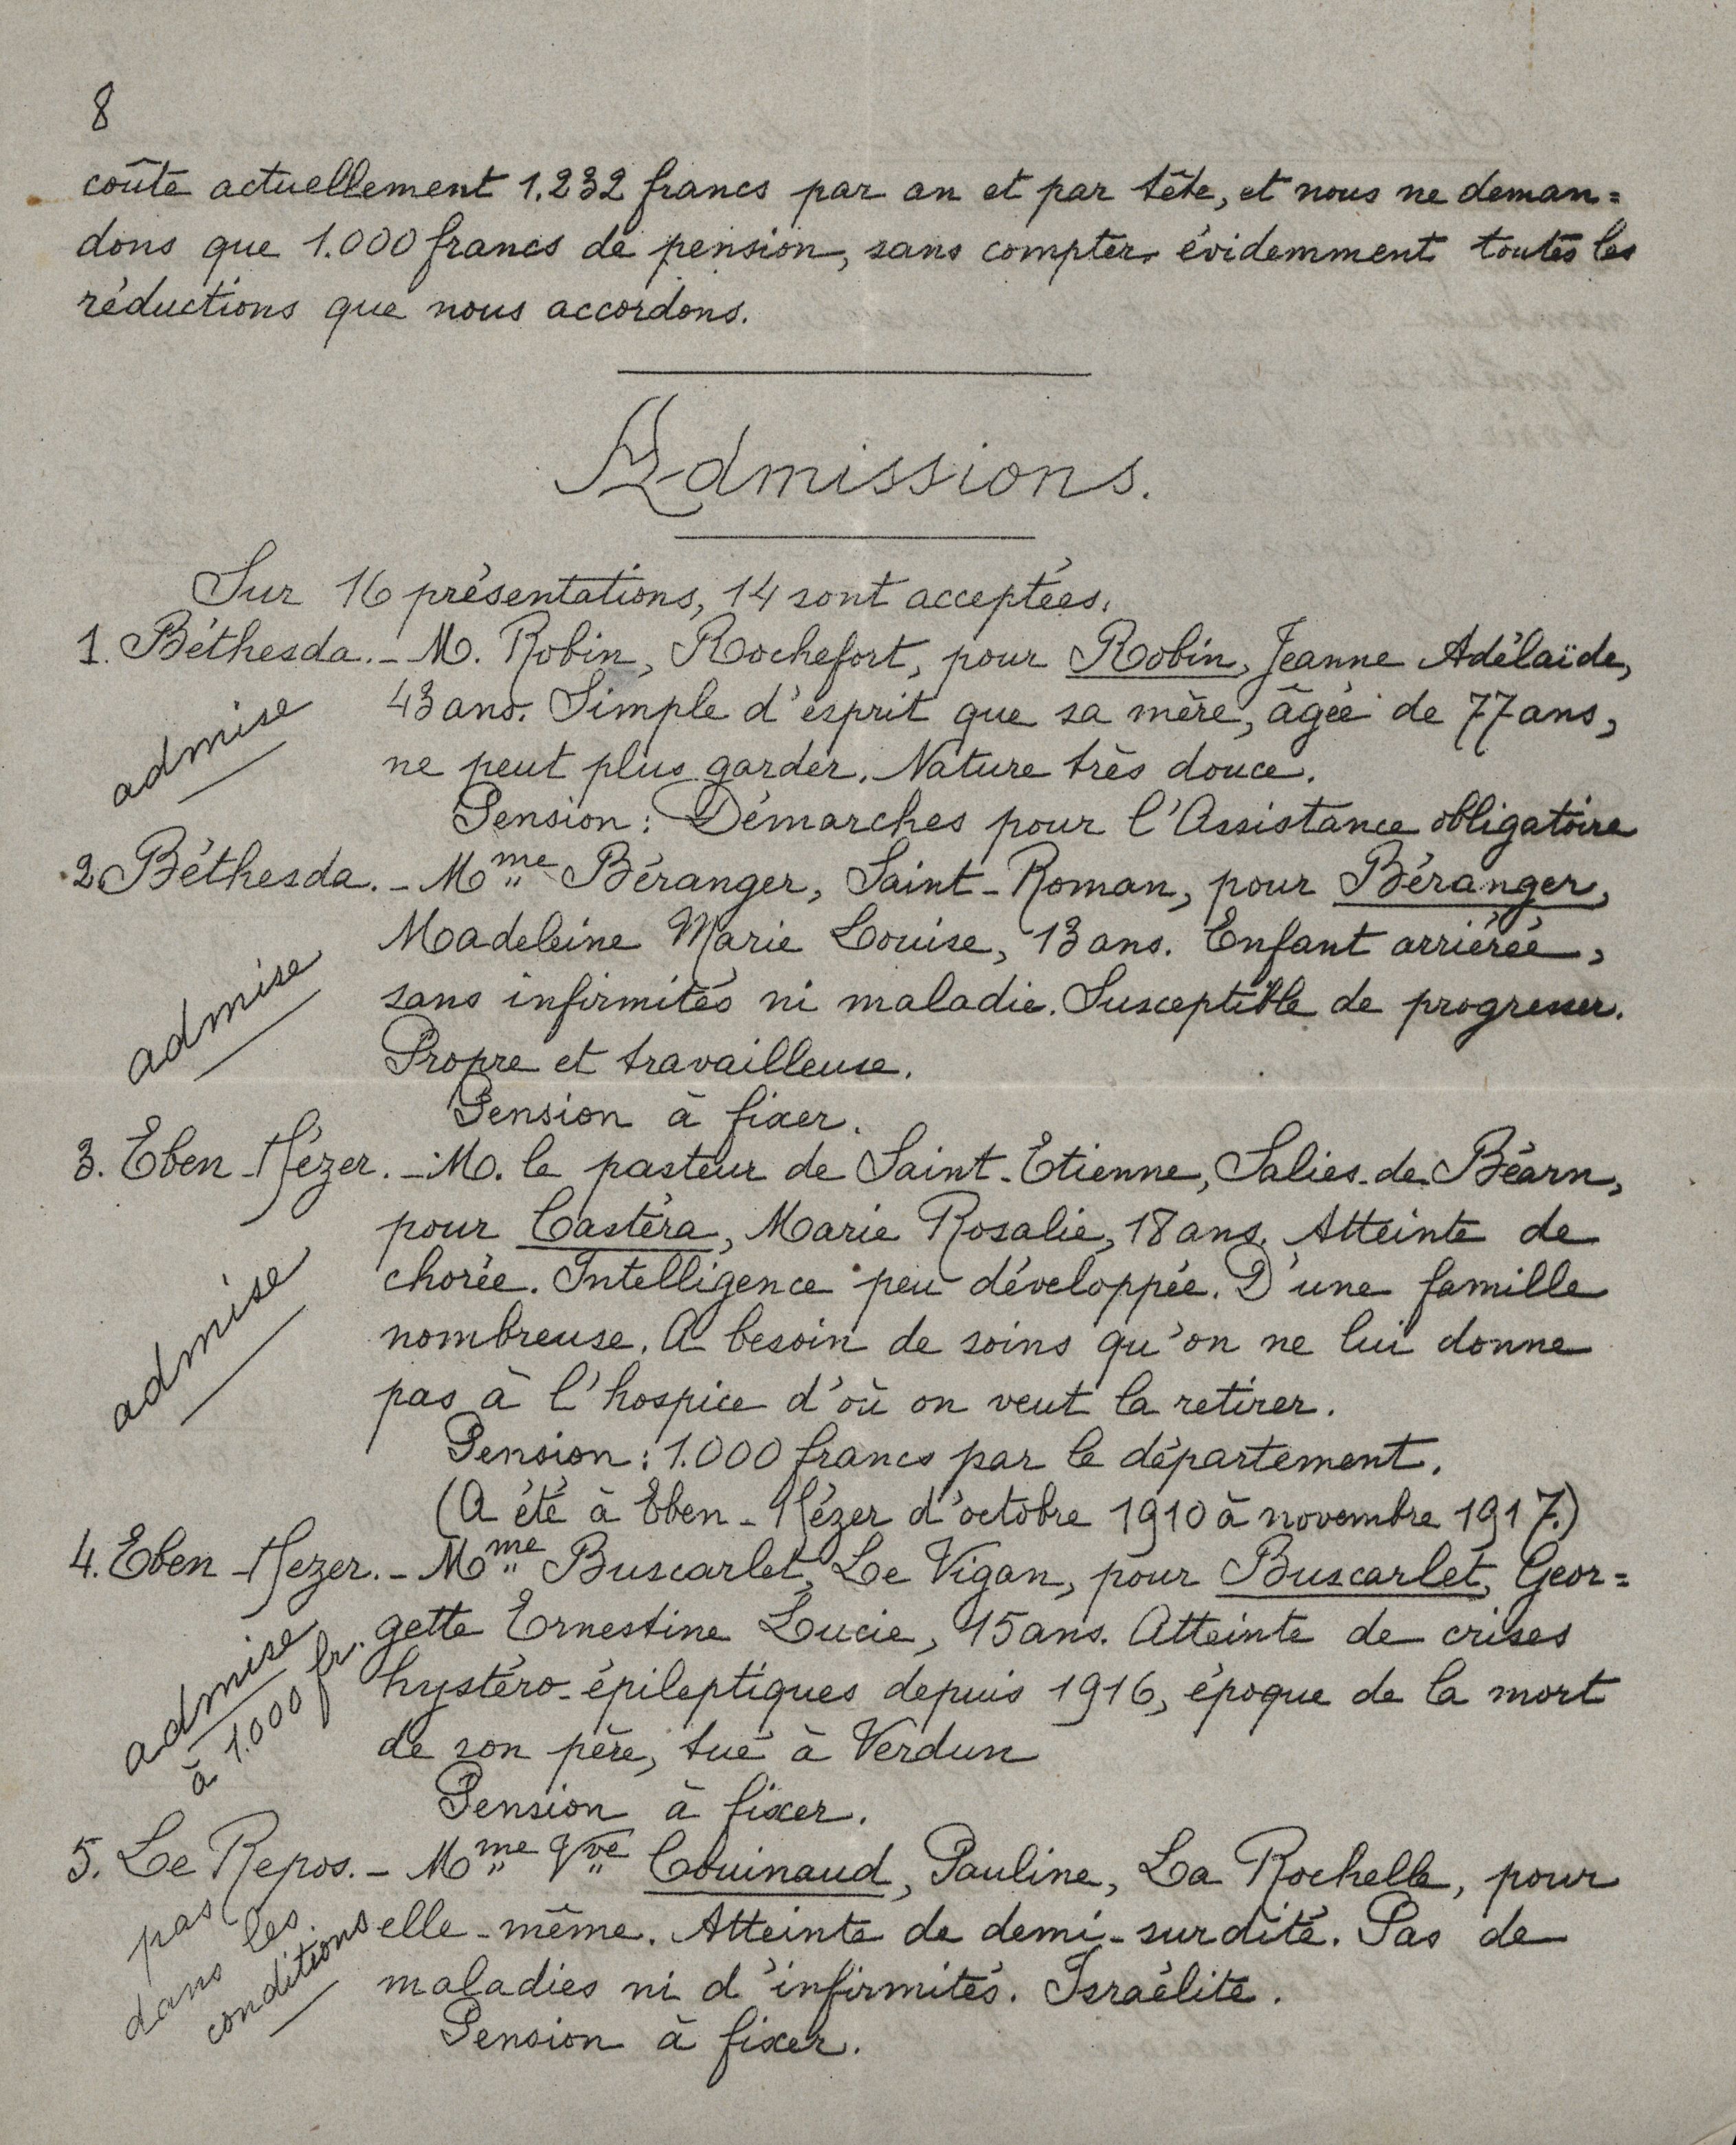 8
coûte actuellement 1.232 francs par an et par tête, et nous ne deman=
dons que 1.000 francs de pension, sans compter évidemment toutes les
réductions que nous accordons.
Admissions.
Sur 16 présentations, 14 sont acceptées.
1. Béthesda. - M. Robin, Rochefort, pour Robin, Jeanne Adélaïde,
admise
43 ans. Simple d'esprit que sa mère, âgée de 77 ans,
ne peut plus garder. Nature très douce.
Pension : Démarches pour l'Assistance obligatoire
2. Béthesda. - Mme Béranger, Saint-Roman, pour Béranger,
admise
Madeleine Marie Louise, 13 ans. Enfant arriérée,
sans infirmités ni maladie. Susceptible de progresser.
Propre et travailleuse.
Pension à fixer.
3. Eben-Hézer. - M. le pasteur de Saint-Etienne, Salies-de-Béarn,
admise
pour Castéra, Marie Rosalie, 18 ans. Atteinte de
chorée. Intelligence peu développée. D'une famille
nombreuse. A besoin de soins qu'on ne lui donne
pas à l'hospice d'où on veut la retirer.
Pension : 1.000 francs par le département.
(A été à Eben-Hézer d'octobre 1910 à novembre 1917.)
4. Eben-Hezer. - Mme Buscarlet, Le Vigan, pour Buscarlet, Geor=
admise
à 1.000 fr.
gette Ernestine Lucie, 15 ans. Atteinte de crises
hystéro-épileptiques depuis 1916, époque de la mort
de son père, tué à Verdun
Pension à fixer.
5. Le Repos. - Mme Vve Couinaud, Pauline, La Rochelle, pour
pas
dans les
conditions
elle-même. Atteinte de demi-surdité. Pas de
maladies ni d'infirmités. Israélite.
Pension à fixer.